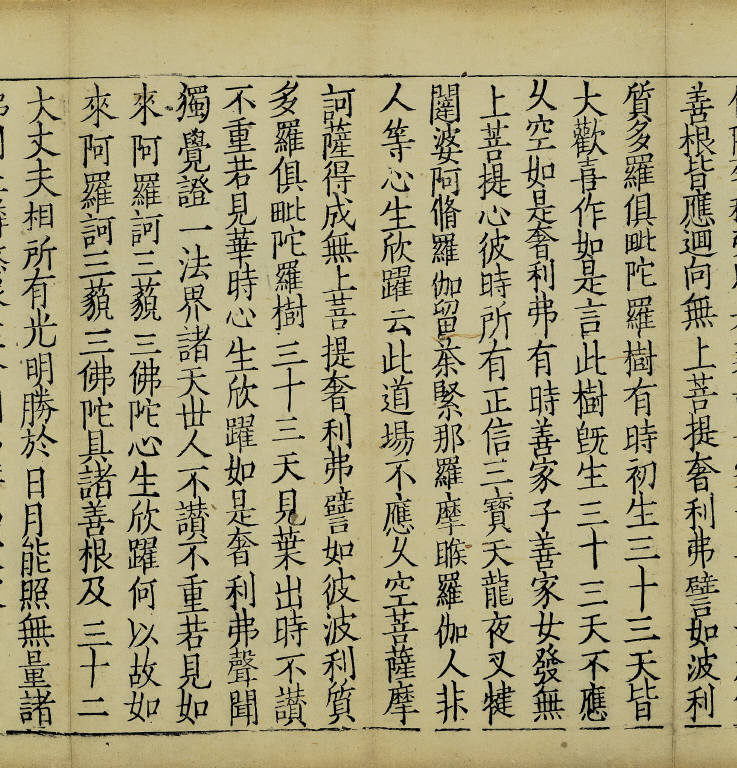 善根皆應迴向無上菩提奢利弗譬如波利
質多羅俱毗陀羅樹有時初生三十三天皆
大歡喜作如是言此樹旣生三十三天不應
久空如是奢利弗有時善家子善家女發無
上菩提心彼時所有正信三寶天龍夜叉犍
闥婆阿脩羅伽留荼緊那羅摩睺羅伽人非
人等心生欣躍云此道場不應久空菩薩摩
訶薩得成無上菩提奢利弗譬如彼波利質
多羅俱毗陀羅樹三十三天見葉出時不讃
不重若見華時心生欣躍如是奢利弗聲聞
獨覺證一法界諸天世人不讃不重若見如
來阿羅訶三藐三佛陀心生欣躍何以故如
來阿羅訶三藐三佛陀具諸善根及三十二
大丈夫相所有光明勝於日月能照無量諸